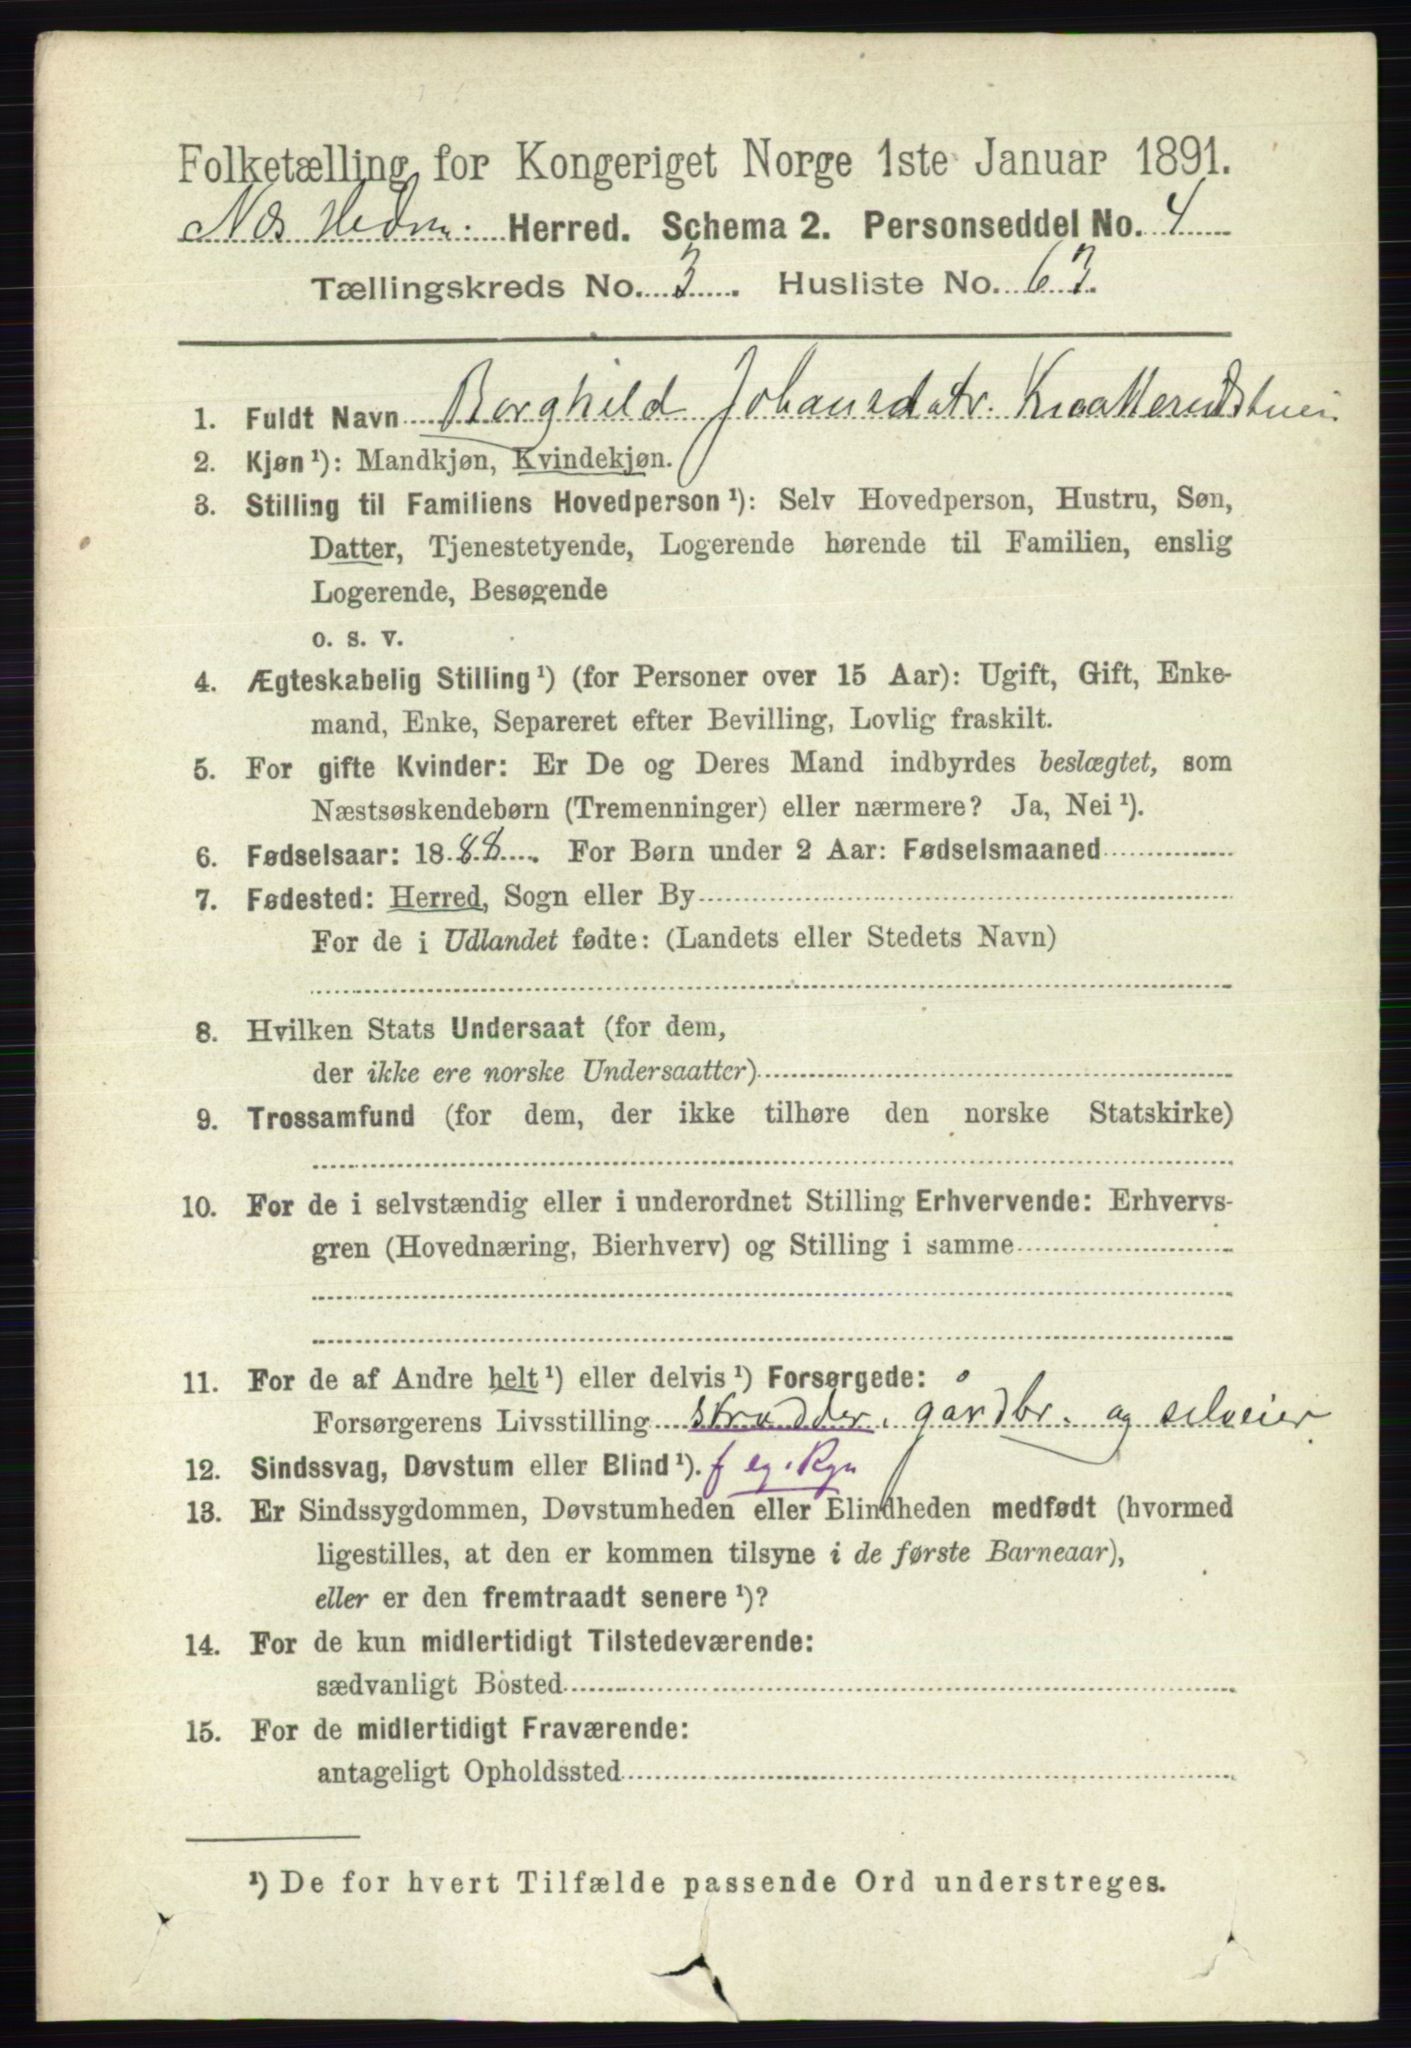 Folketælling for Kongeriget Norge 1ste Januar 1891.
Nes Hedm. Herred. Schema 2. Personseddel No. 4
Tællingskreds No. 3. Husliste No. 63.
1. Fuldt Navn Borghild Johansdatr.
2. Kjøn ¹): Mandkjøn, Kvindekjøn.
3. Stilling til Familiens Hovedperson ¹): Selv Hovedperson, Hustru, Søn,
Datter, Tjenestetyende, Logerende hørende til Familien, enslig
Logerende, Besøgende
o. s. v.
4. Ægteskabelig Stilling ¹) (for Personer over 15 Aar): Ugift, Gift, Enke-
mand, Enke, Separeret efter Bevilling, Lovlig fraskilt.
5. For gifte Kvinder: Er De og Deres Mand indbyrdes beslægtet, som
Næstsøskendebørn (Tremenninger) eller nærmere? Ja, Nei ¹).
6. Fødselsaar: 1888. For Børn under 2 Aar: Fødselsmaaned
7. Fødested: Herred, Sogn eller By
For de i Udlandet fødte: (Landets eller Stedets Navn)
8. Hvilken Stats Undersaat (for dem,
der ikke ere norske Undersaatter)
9. Trossamfund (for dem, der ikke tilhøre den norske Statskirke)
10. For de i selvstændig eller i underordnet Stilling Erhvervende: Erhvervs-
gren (Hovednæring, Bierhverv) og Stilling i samme
11. For de af Andre helt ¹) eller delvis ¹) Forsørgede:
Forsørgerens Livsstilling skrædder, gårdbr. og selveier
12. Sindssvag, Døvstum eller Blind ¹). f eg.
13. Er Sindssygdommen, Døvstumheden eller Blindheden medfødt (hvormed
ligestilles, at den er kommen tilsyne i de første Barneaar),
eller er den fremtraadt senere ¹)?
14. For de kun midlertidigt Tilstedeværende:
sædvanligt Bosted
15. For de midlertidigt Fraværende:
antageligt Opholdssted
¹) De for hvert Tilfælde passende Ord understreges.